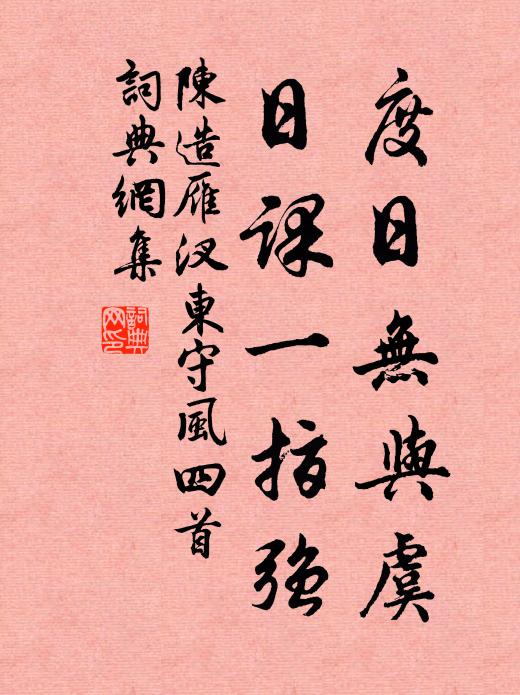 度日無與虞
日課一指強
陳造雁汊東守風四首
詞典網集
詞典網印